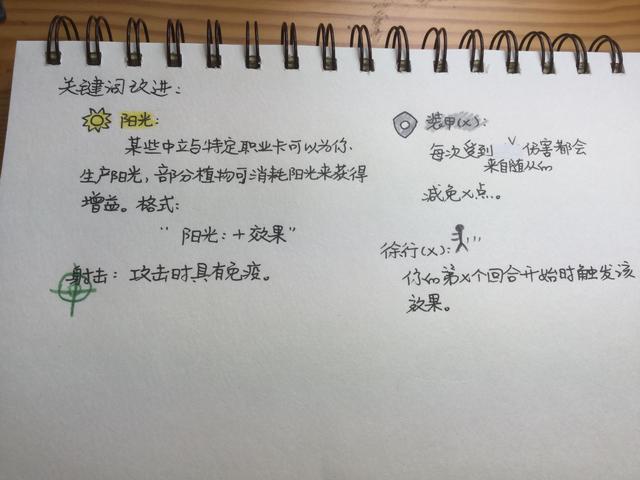 关键词改进：
阳光：
某些中立与特定职业卡可以为你
生产阳光，部分植物可消耗阳光来获得
增益。格式：
“阳光：+效果”
射击：攻击时具有免疫。
装甲(X)：
每次受到来自随从的伤害都会
减免X点。
徐行(X)：
你的第X个回合开始时触发该
效果。